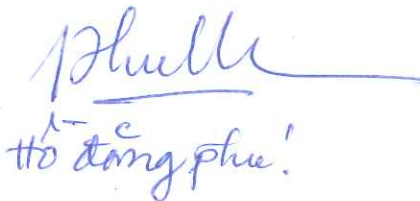 Hồ đăng phú!